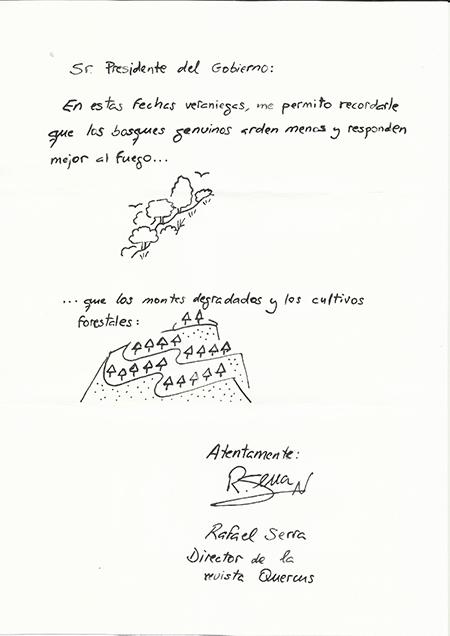 Sr. Presidente del Gobierno:
En estas fechas veraniegas, me permito recordarle
que los bosques genuinos arden menos y responden
mejor al fuego...
...que los montes degradados y los cultivos
forestales:
Atentamente:
R. Serra
Rafael Serra
Director de la
revista Quercus